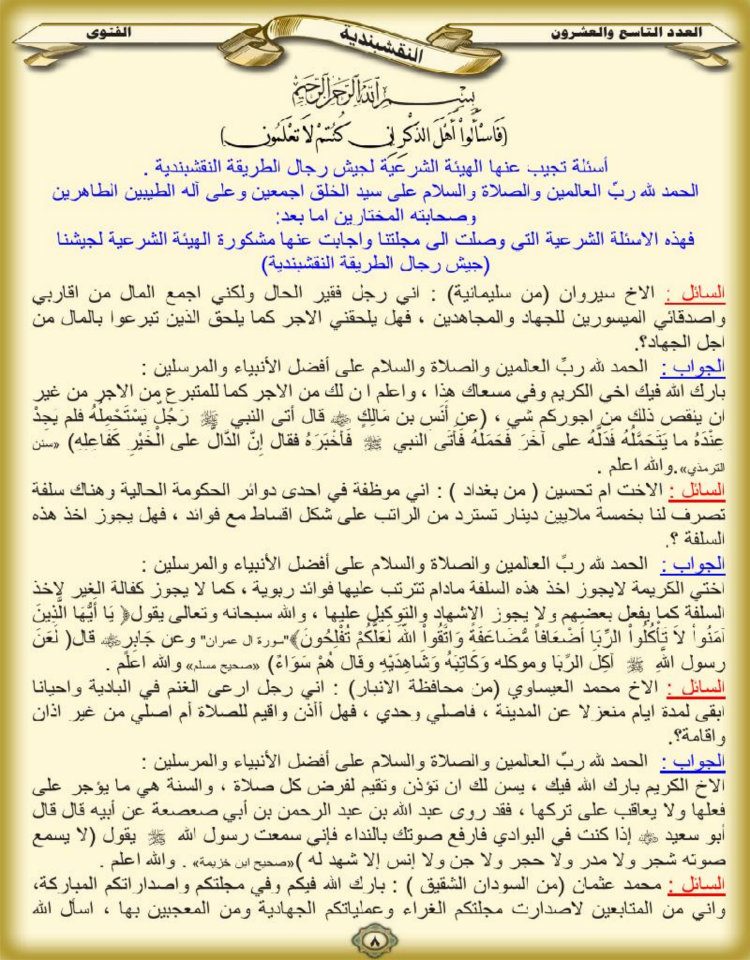 العدد التاسع والعشرون
النقشبندية
الفتوى
بسم الله الرحمن الرحيم
(فَاسْأَلُوا أَهْلَ الذِّكْرِ إِنْ كُنْتُمْ لَا تَعْلَمُونَ)
أسئلة تجيب عنها الهيئة الشرعية لجيش رجال الطريقة النقشبندية .
الحمد لله ربِّ العالمين والصلاة والسلام على سيد الخلق اجمعين وعلى آله الطيبين الطاهرين
وصحابته المختارين اما بعد:
فهذه الاسئلة الشرعية التي وصلت الى مجلتنا واجابت عنها مشكورة الهيئة الشرعية لجيشنا
(جيش رجال الطريقة النقشبندية)
السائل : الاخ سيروان (من سليمانية) : اني رجل فقير الحال ولكني اجمع المال من اقاربي
واصدقائي الميسورين للجهاد والمجاهدين ، فهل يلحقني الاجر كما يلحق الذين تبرعوا بالمال من
اجل الجهاد؟.
الجواب : الحمد لله ربِّ العالمين والصلاة والسلام على أفضل الأنبياء والمرسلين :
بارك الله فيك اخي الكريم وفي مسعاك هذا ، واعلم ا ن لك من الاجر كما للمتبرع من الاجر من غير
ان ينقص ذلك من اجوركم شي ، (عن أَنَسِ بن مَالِكٍ ﵁ قال أتى النبي ﷺ رَجُلٌ يَسْتَحْمِلُهُ فلم يَجِدْ
عِنْدَهُ ما يَتَحَمَّلُهُ فَدَلَّهُ على آخَرَ فَحَمَلَهُ فَأَتَى النبي ﷺ فَأَخْبَرَهُ فقال إنَّ الدَّالَّ على الْخَيْرِ كَفَاعِلِهِ) «سنن
الترمذي».والله اعلم .
السائل : الاخت ام تحسين ( من بغداد ) : اني موظفة في احدى دوائر الحكومة الحالية وهناك سلفة
تصرف لنا بخمسة ملايين دينار تسترد من الراتب على شكل اقساط مع فوائد ، فهل يجوز اخذ هذه
السلفة ؟.
الجواب : الحمد لله ربِّ العالمين والصلاة والسلام على أفضل الأنبياء والمرسلين :
اختي الكريمة لايجوز اخذ هذه السلفة مادام تترتب عليها فوائد ربوية ، كما لا يجوز كفالة الغير لاخذ
السلفة كما يفعل بعضهم ولا يجوز الاشهاد والتوكيل عليها ، والله سبحانه وتعالى يقول﴿ يَا أَيُّهَا الَّذِينَ
آمَنُواْ لاَ تَأْكُلُواْ الرِّبَا أَضْعَافاً مُّضَاعَفَةً وَاتَّقُواْ اللّهَ لَعَلَّكُمْ تُفْلِحُونَ﴾"سورة ال عمران" وعن جَابِرٍ﵁ قال( لَعَنَ
رسول اللَّهِ ﷺ آكِلَ الرِّبَا وموكله وَكَاتِبَهُ وَشَاهِدَيْهِ وقال هُمْ سَوَاءٌ) «صحيح مسلم» والله اعلم .
السائل : الاخ محمد العيساوي (من محافظة الانبار) : اني رجل ارعى الغنم في البادية واحيانا
ابقى لمدة ايام منعزلا عن المدينة ، فاصلي وحدي ، فهل أأذن واقيم للصلاة أم اصلي من غير اذان
واقامة؟.
الجواب : الحمد لله ربِّ العالمين والصلاة والسلام على أفضل الأنبياء والمرسلين :
الاخ الكريم بارك الله فيك ، يسن لك ان تؤذن وتقيم لفرض كل صلاة ، والسنة هي ما يؤجر على
فعلها ولا يعاقب على تركها ، فقد روى عبد الله بن عبد الرحمن بن أبي صعصعة عن أبيه قال قال
أبو سعيد ﵁ إذا كنت في البوادي فارفع صوتك بالنداء فإني سمعت رسول الله ﷺ يقول (لا يسمع
صوته شجر ولا مدر ولا حجر ولا جن ولا إنس إلا شهد له )«صحيح ابن خزيمة» . والله اعلم .
السائل : محمد عثمان (من السودان الشقيق ) : بارك الله فيكم وفي مجلتكم واصداراتكم المباركة،
واني من المتابعين لاصدارت مجلتكم الغراء وعملياتكم الجهادية ومن المعجبين بها ، اسأل الله
٨